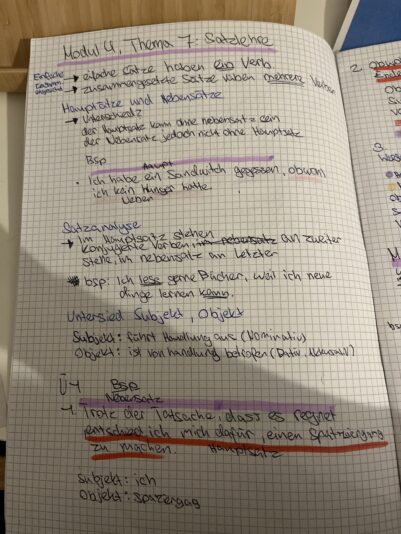 Modul 4, Thema 7: Satzlehre
Einfache → eifache Sätze haben ein Verb
→ zusammengesetzte Sätze haben mehrere Verben
Hauptsätze und Nebensätze
→ Unterschied
der Hauptsatz kann ohne nebensatz sein
der Nebensatz jedoch nicht ohne Hauptsatz
Bsp
Haupt
• Ich habe ein Sandwitch gegessen, obwohl
ich kein Hunger hatte.
Neben
Satzanalyse
→ Im Hauptsatz stehen
konjugierte Verben, im nebensatz an zweiter
stelle, im nebensatz an letzter
bsp: Ich lese gerne Bücher, weil ich neue
dinge lernen kann.
Untersied Subjekt, Objekt
Subjekt: führt Handlung aus (Nominativ)
Objekt: ist von handlung betrofen (Dativ, Akkusativ)
Ü4 Bsp
Nebensatz
→ Trotz der Tatsache, dass es regnet
entschied ich mich dafür, einen Spatziergang
zu machen. Hauptsatz
Subjekt: ich
Objekt: spazergag
2.
3.